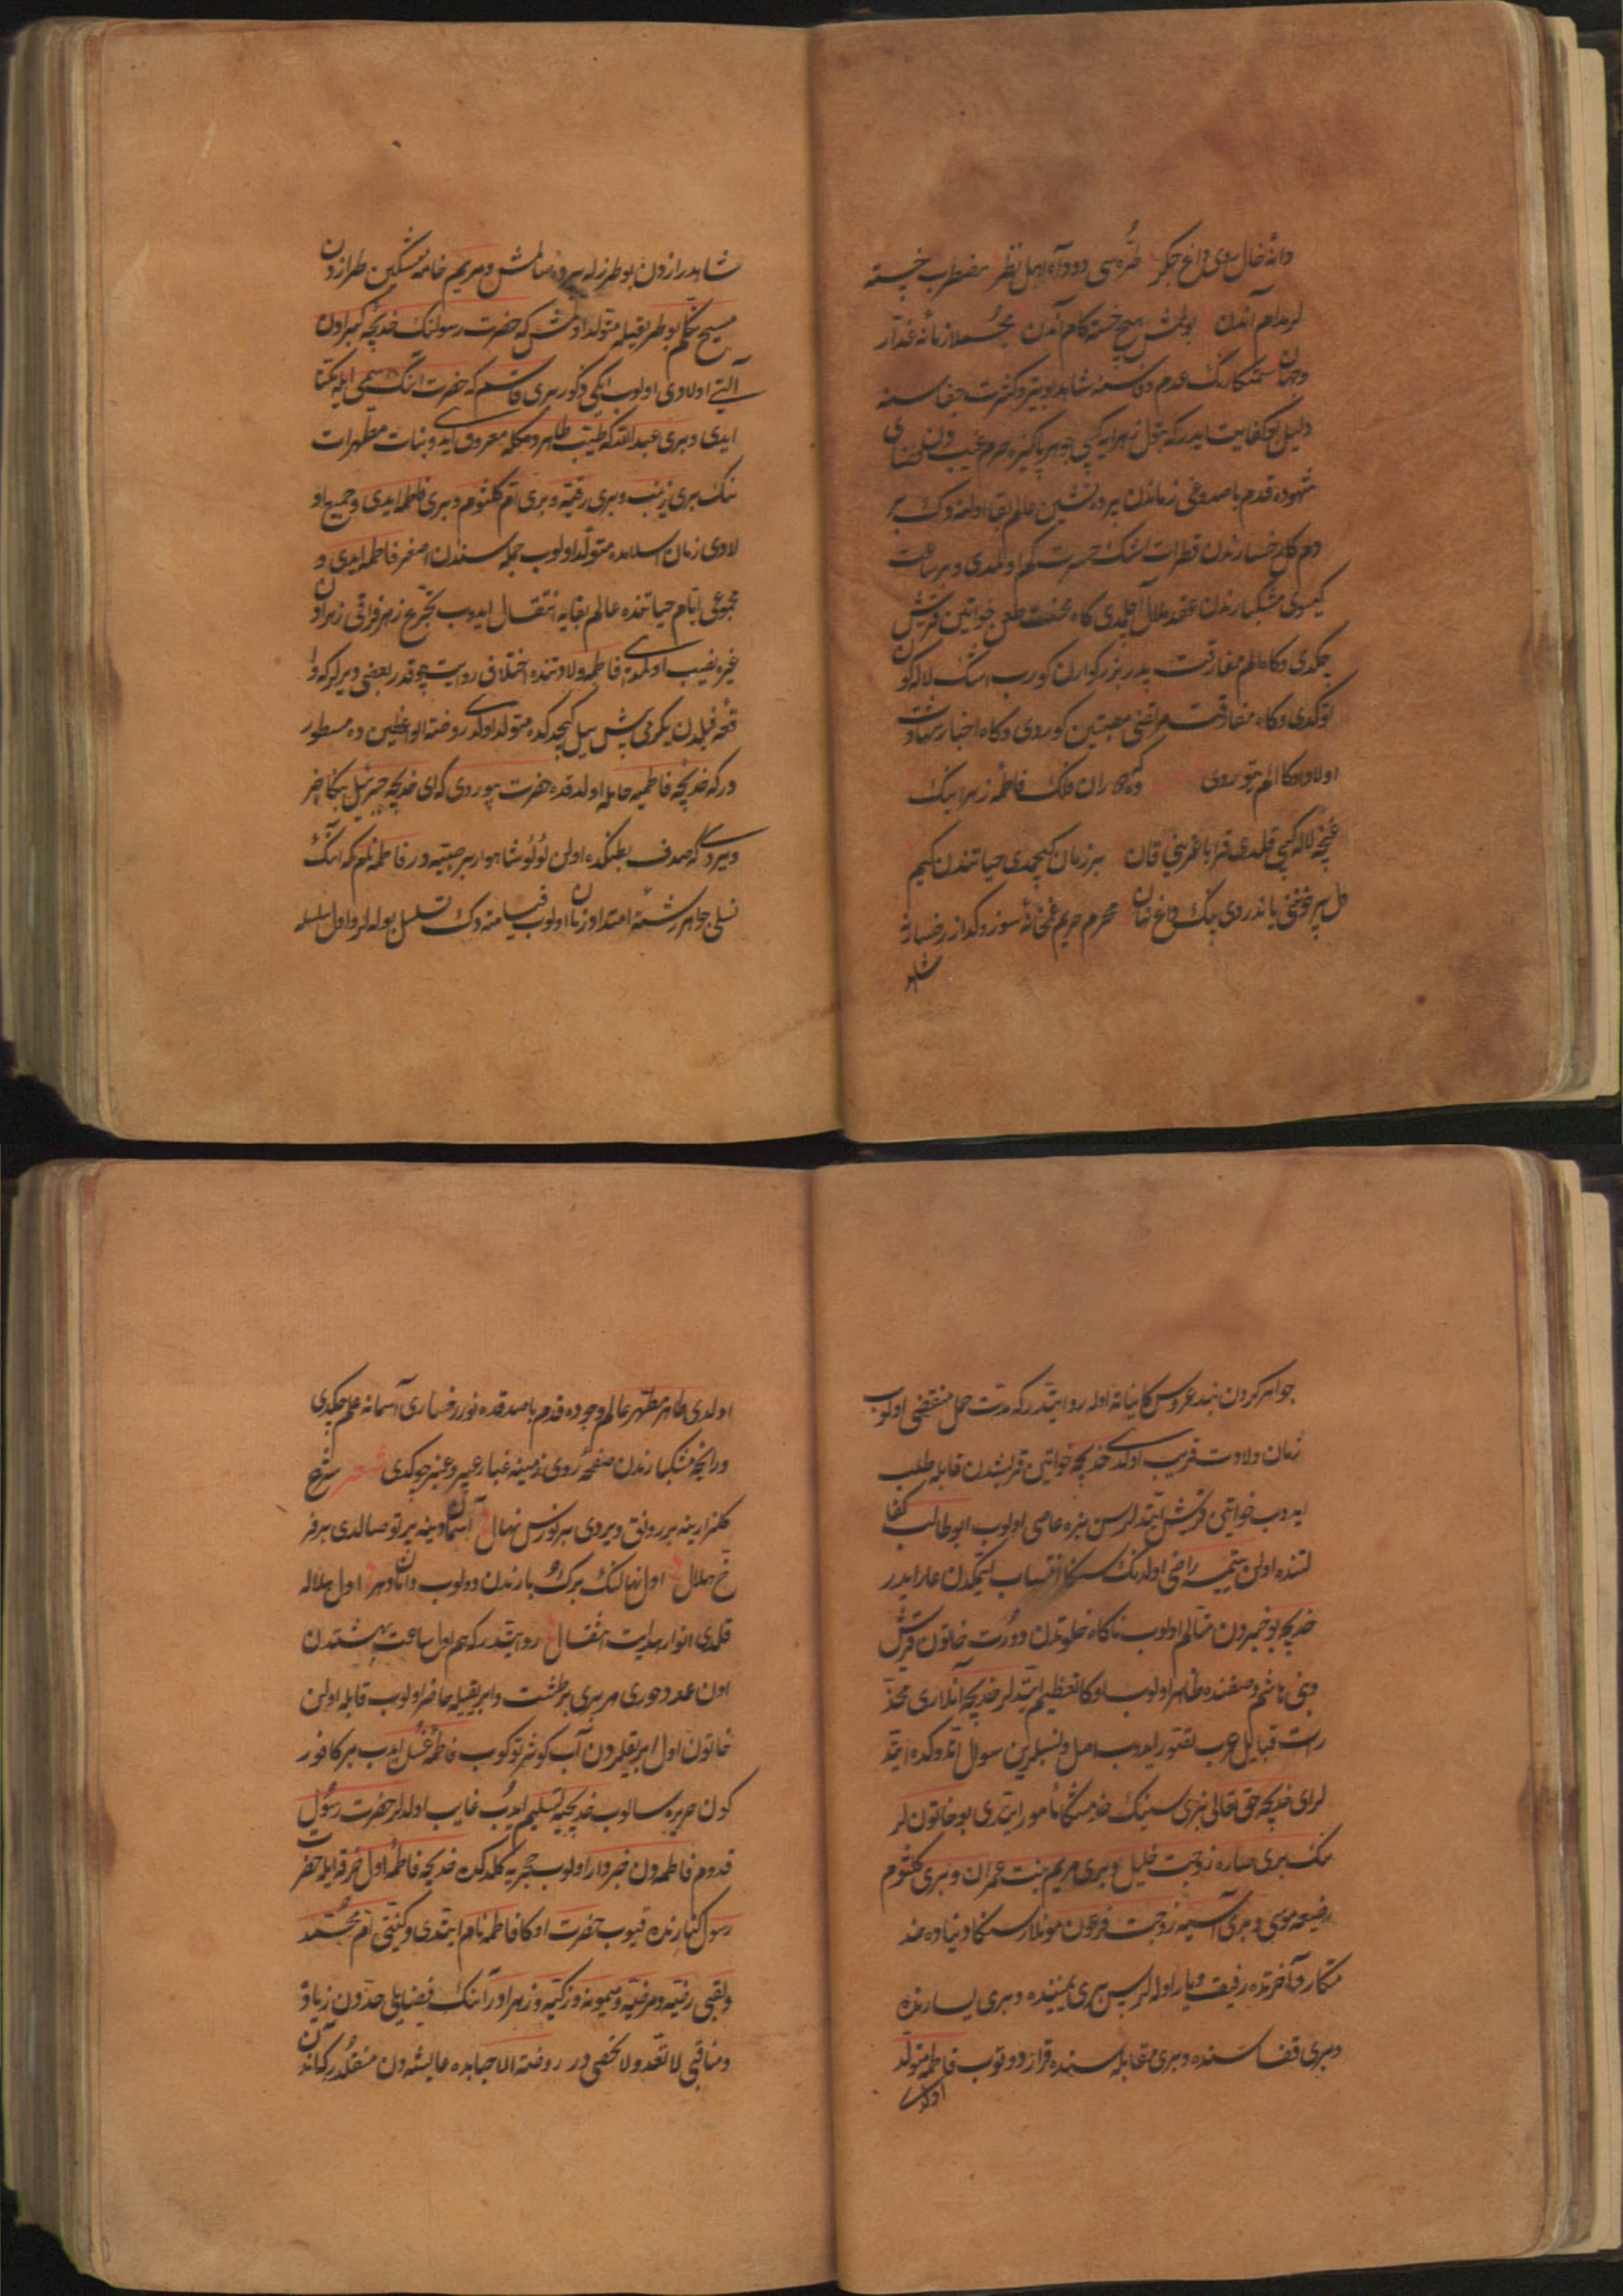 دانۀ خال سوی داغ جکر طره سی دود آه اهل نظر مضطرب خسته
لر مدام آندن بولمش هیچ خسته کام آندن مجملا زمانۀ غدار
وجهان ستمکارنک عدم وفاسنه شاهد و بیتر و کثرت جفاسنه
دلیل بو کفایت ایدر که بتول زهرا کیبی جوهر پاکیزه حرم غیب دن فضای
شهوده قدم باصدوغی زماندن پرده نشین عالم بقا اولنه دک بر
دم کل رخسارندن قطرات اشک حسرت کم اولمدی و بر ساعت
کیسوی مشکبارندن عقد ملال آچلمدی کاه محنت طعن خواتین قریش
چکدی و کاه الم مفارقت پدر بزرکوارن کورب اشک لاله کون
توکدی و کاه مفارقت مرتضی مصیبتین کوردی و کاه اخبار شهادت
اولاد اوکا الم یتوردی که دوران فلک فاطمۀ زهرانیک
غنچۀ لاله کیبی قلمدی قرا باغرینی قان بر زمان کیچمدی حیاتندن کیم
دل پر خونی یاندرمدی یک داغ نهان محرم حریم غمخانۀ سوز و کداز رخسارۀ
شاهد
شاهد رازدن بو طرزله پرده صالمش و مریم خامۀ مشکین طرازدن
مسیح تکلم بو طریقیله متولد اولمش که حضرت رسولنک خدیجۀ کبرادن
آلتی اولادی اولوب ایکی ذکور بری قاسم که حضرت انک اسمی ایله مکنا
ایدی و بری عبدالله که طیب و طاهر و مکله معروف ایدی و بنات مطهرات
نک بری زینب و بری رقیه و بری ام کلثوم و بری فاطمه ایدی و جمیع او
لادی زمان اسلامده متولد اولوب جمله سندن اصغر فاطمه ایدی و
مجموعی ایام حیاتنده عالم بقایه انتقال ایدوب تجرع زهر فراقی زهرادن
غیره نصیب اولمدی فاطمه ولادتنده اختلاف روایت چوقدر بعضی دیرلر که وا
قعۀ فیلدن یکرمی بیش ییل کیچدکده متولد اولدی روضة الواعظین ده مسطور
در که خدیجه فاطمیه حامله اولدقده حضرت بیوردی که ای خدیجه جبرئیل بنکا خبر
ویردی که صدف بطنکده اولن لؤلؤ شاهوار بر صبیه در فاطمه نام که انک
نسلی جواهر رشتۀ امتداد زمان اولوب قیامته دک تسلسل بوله لر و اول سلسله
جواهر کردن بند عروس کاینات اوله روایتدر که مدت حمل منقضی اولوب
زمان ولادت قریب اولدی خدیجه خواتین قریشدن قابله طلب
ایدوب خواتین قریش ایتدیلر سن بزه عاصی اولوب ابوطالب کفا
لتنده اولن یتیمه راضی اولدنک سنکا انتساب ایتمکدن عار ایدر
خدیجه بو خبردن متالم اولوب ناکاه خلوتدن دورت خاتون قریش
و بنی هاشم صفتنده ظاهر اولوب اوکا تعظیم ایتدیلر خدیجه آنلاری مخد
رات قبایل عرب تصور ایدوب اصل و نسبلرین سوال اتدوکده ایتد
لر ای خدیجه حق تعالی بزی سینک خدمتنکا مامور ایتدی بو خاتون لر
نک بری ساره زوجت خلیل و بری مریم بنت عمران و بری کلثوم
رضیعه موسی و بری آسیه زوجت فرعون مونلار سنکا دنیاده خد
متکار و آخرتده رفیق و یار اولدلر پس بری یمیننده و بری یسارنده
و بری قفاسنده و بری مقابله سنده قرار دوتوب فاطمه متولد
اولدی
اولدی طاهر مطهر عالم وجوده قدم باصدقده نور رخساری آسمانه علم چکدی
و رایحۀ مشکبارندن صفحۀ روی زمینه غبار عبیر و عنبر چوکدی شعر شرع
کلزارینه بر رونق ویردی بر نورس نهال آسمان دینه پرتو صالدی بر فر
خ هلال اول نهالنک برک و بارندن دولوب دامان دهر اول هلاله
قلدی انوار هدایت انتقال روایتدر که هم اول ساعت بهشتدن
اون عدد حوری هر بری بر طشت و ابریقیله حاضر اولوب قابله اولن
خاتون اول ابریقلردن آب کوثر توکوب فاطمه غسل ایدب بر کافور
کون حریره سالوب خدیجیه تسلیم ایدب غایب اولدلر حضرت رسول
قدوم فاطمه دن خبردار اولوب حجریه کلدکده خدیجه فاطمه اول خرقه ایله حضرت
رسول کنارنده قیوب حضرت اوکا فاطمه نام ایتدی و کنیتی ام محمد
و لقبی رضیه و مرضیه و میمونه و زکیه و زهرا در آنک فضایلی حددن زیاده
و مناقبی لا تعد و لا تخفی در روضة الاحبابده عایشه دن منقلدر که آندن